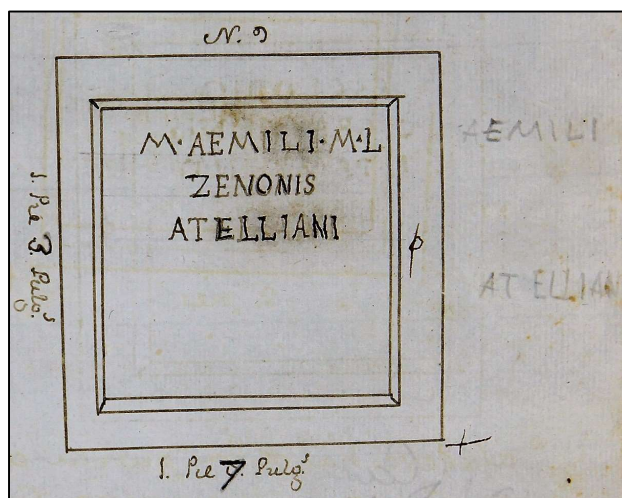 N. 9
M·AEMILI·M·L
ZENONIS
ATELLIANI
1. Pie 3. Pulg.s
1. Pie 7. Pulg.s
AEMILI
ATELLIAN